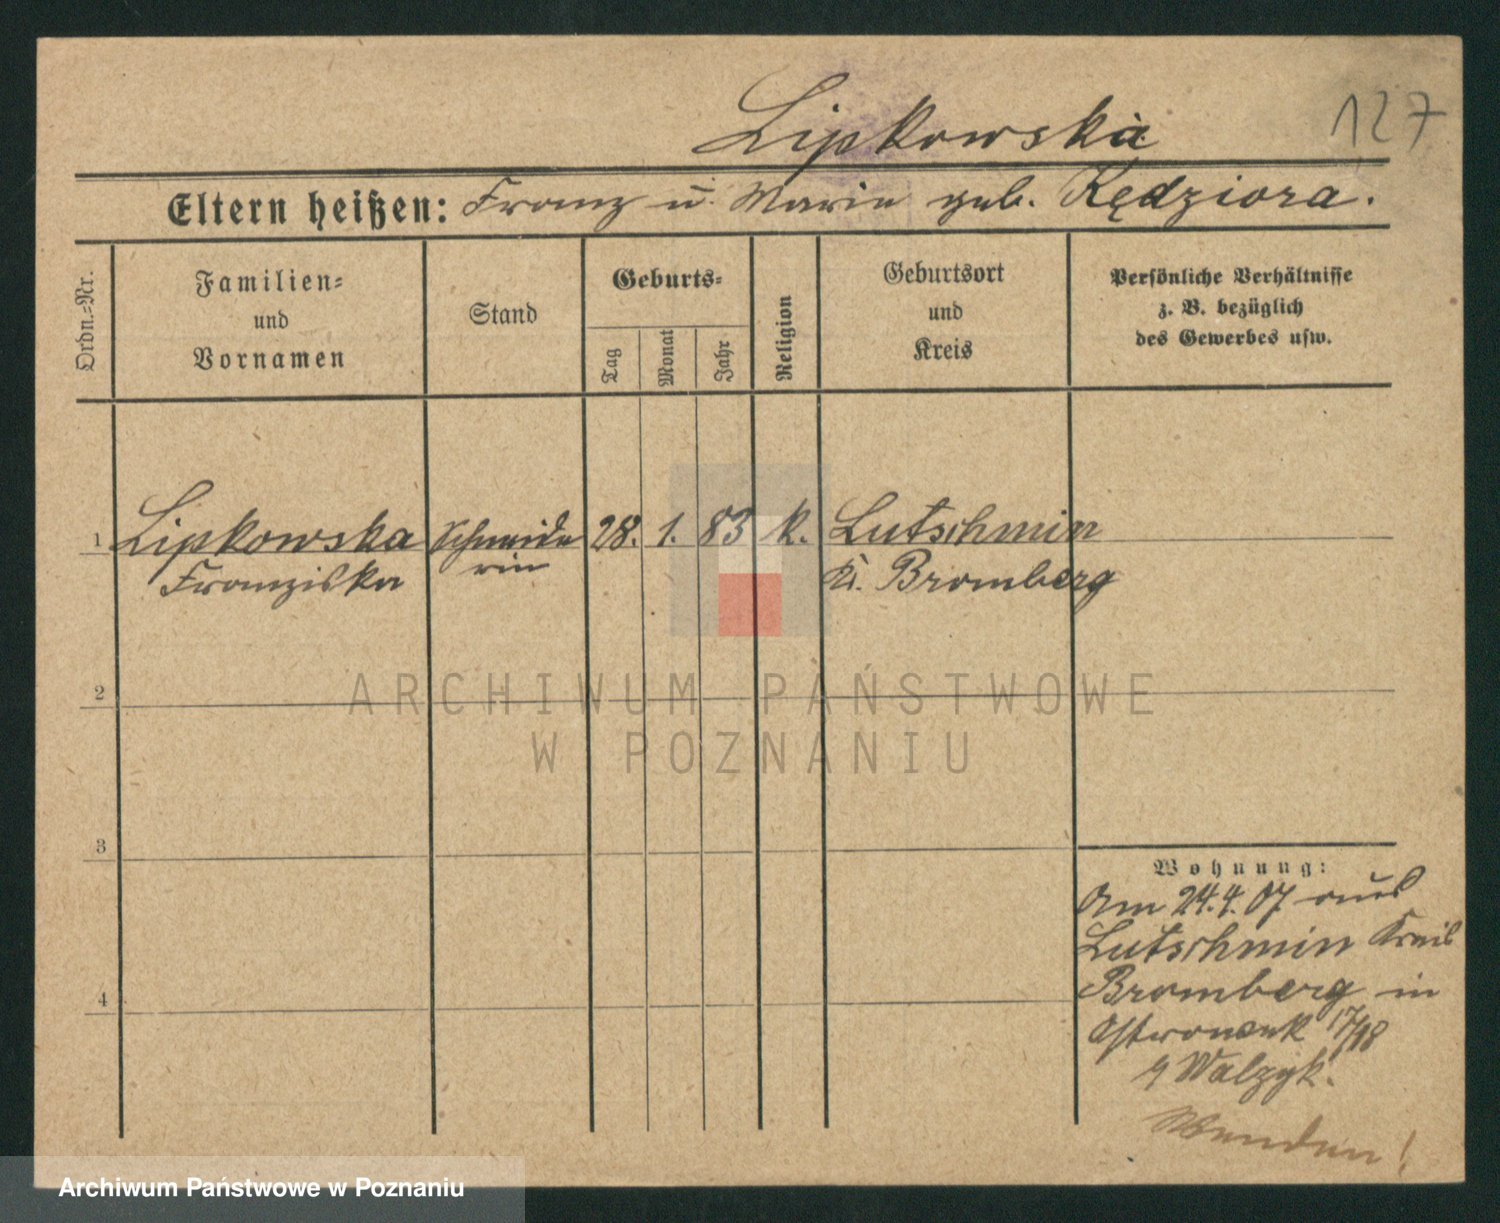 127
Lipkowska
Eltern heißen: Franz u. Marie geb. Kędziora.
Ordn.=Nr.
Familien=
und
Vornamen
Stand
Geburts=
Tag
Monat
Jahr
Religion
Geburtsort
und
Kreis
Persönliche Verhältnisse
z. B. bezüglich
des Gewerbes usw.
1 Lipkowska Schneide 28. 1. 83 k. Lutschmin
Franziska rin Kr. Bromberg
2
3
4
Wohnung:
Am 24.4.07 aus
Lutschmin Kreis
Bromberg in
17/18
Walzyk.
Wenden!
ARCHIWUM PAŃSTWOWE
W POZNANIU
Archiwum Państwowe w Poznaniu